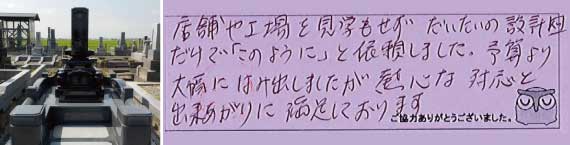 店舗や工場を見学もせず だいたいの設計図
だけで「このように」と依頼しました。予算より
大幅にはみ出しましたが 熱心な対応と
出来あがりに満足しております
ご協力ありがとうございました。